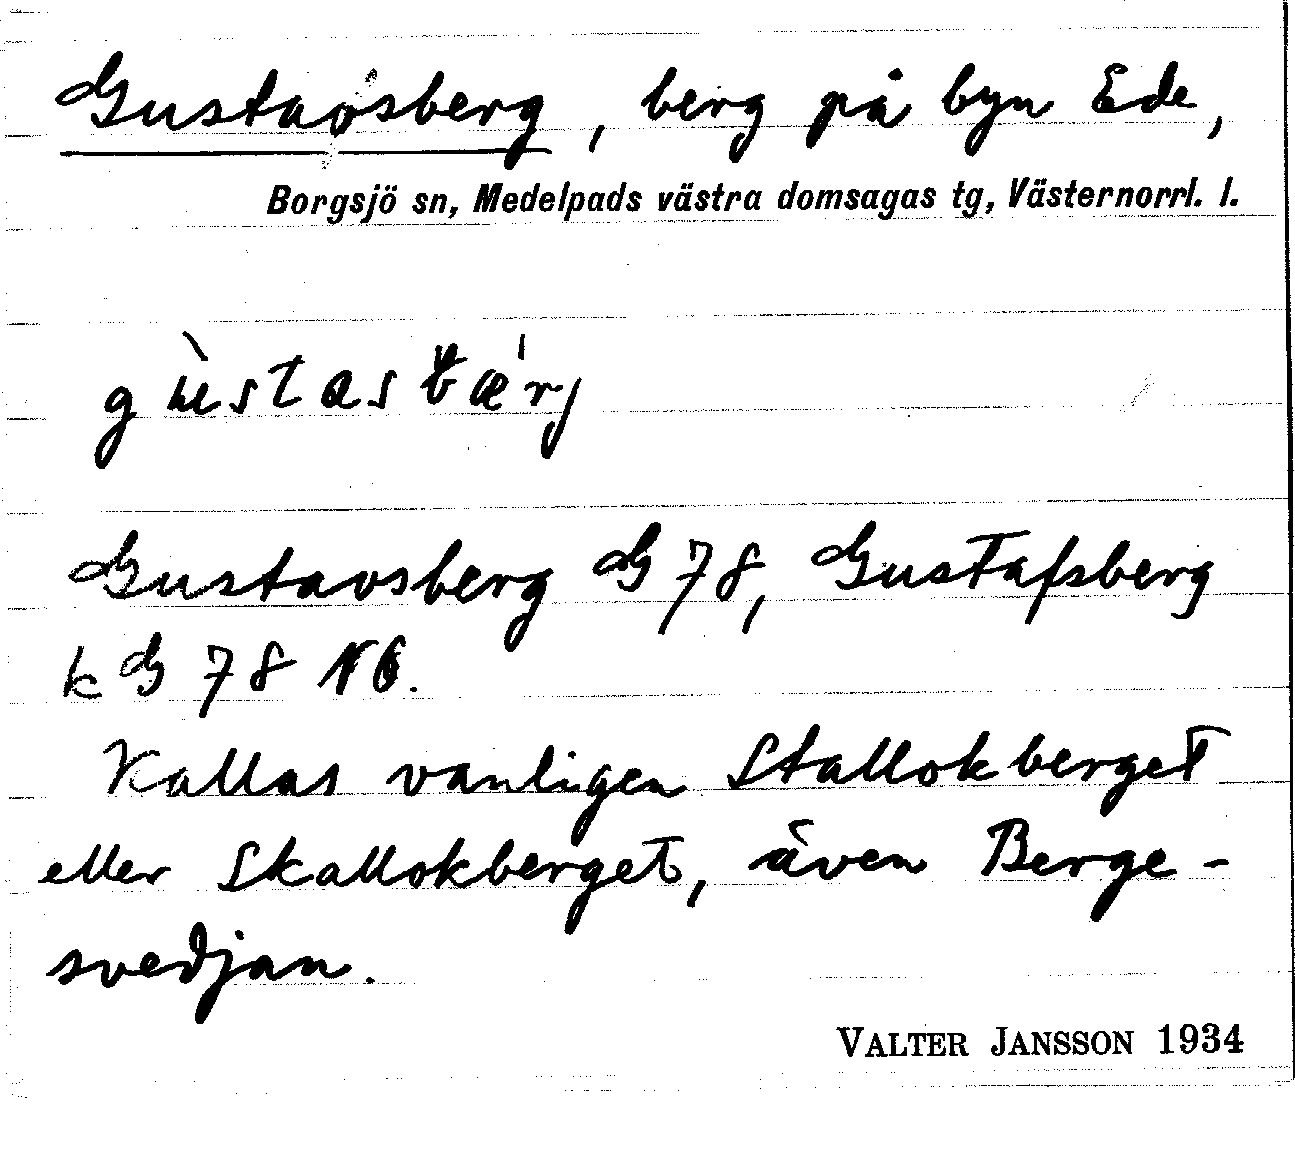 Gustavsberg, berg på byn Ede,
Borgsjö sn, Medelpads västra domsagas tg, Västernorrl. l.
gùstasbǽrj
Gustavsberg G 78, Gustafsberg
k G 78 NÖ.
Kallas vanligen Stallokberget
eller Skallokberget, även Berge-
svedjan.
VALTER JANSSON 1934